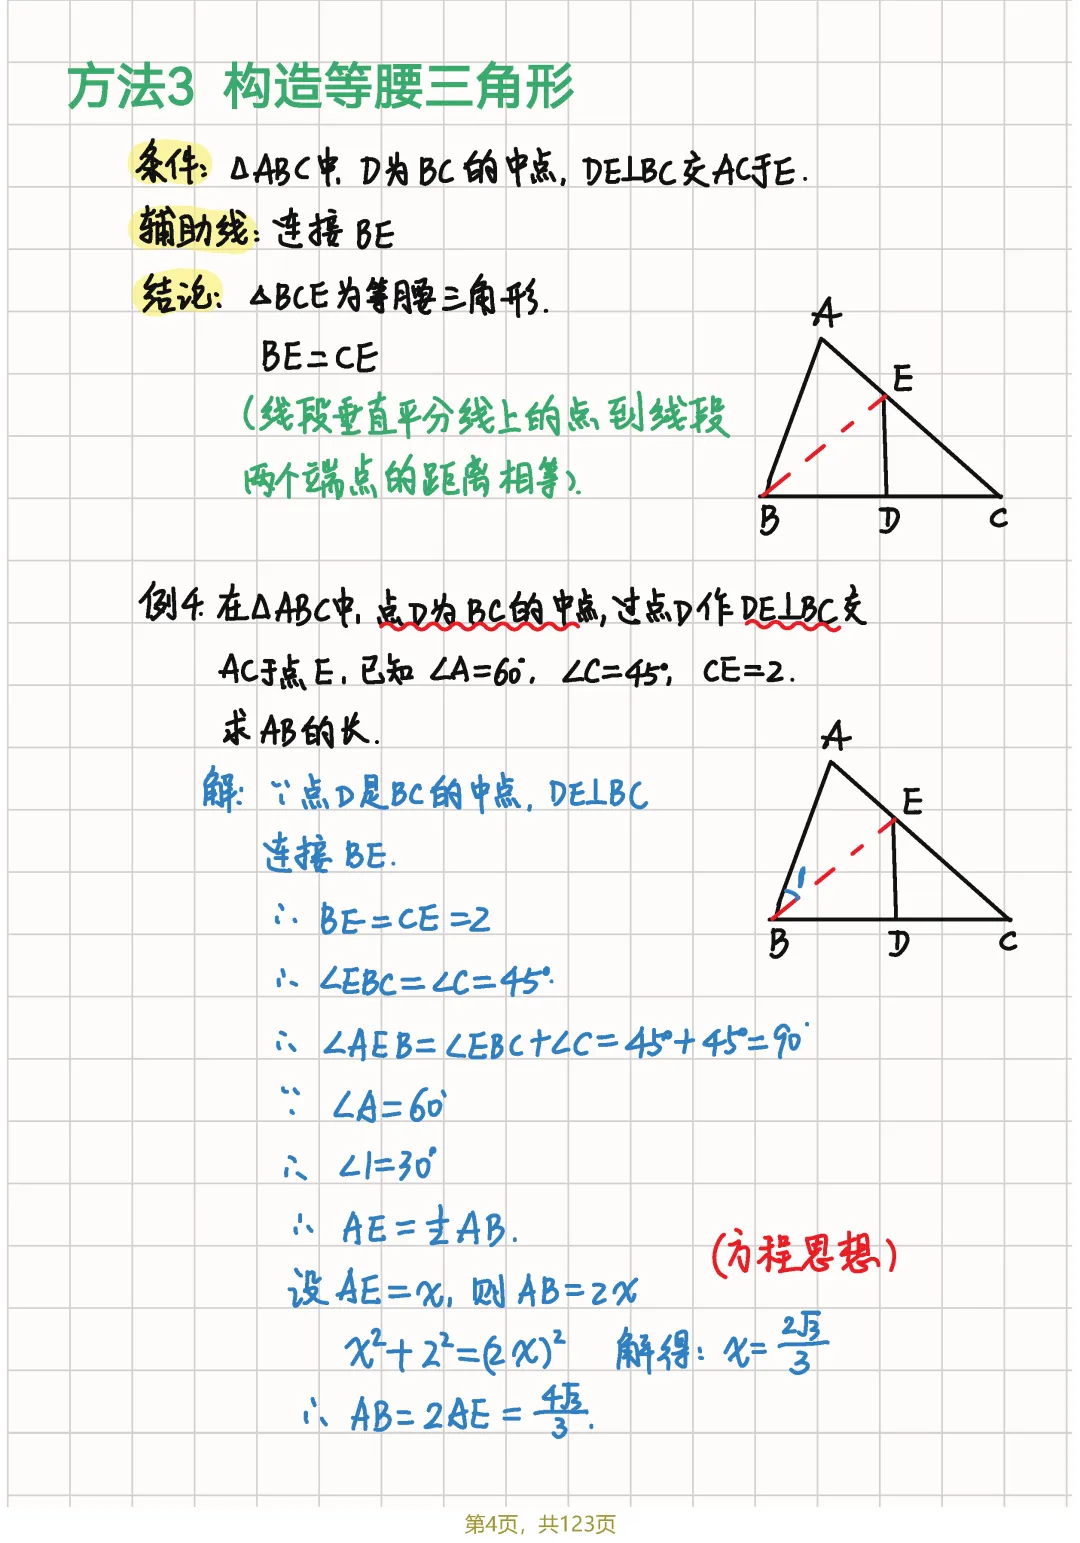 方法3 构造等腰三角形
条件: △ABC中, D为BC的中点, DE⊥BC交AC于E.
辅助线: 连接BE
结论: △BCE为等腰三角形.
BE=CE
(线段垂直平分线上的点到线段
两个端点的距离相等).
A
E
B
D
C
例4. 在△ABC中, 点D为BC的中点, 过点D作DE⊥BC交
AC于点E, 已知∠A=60°, ∠C=45°, CE=2.
求AB的长.
A
E
1
B
D
C
解: ∵点D是BC的中点, DE⊥BC
连接BE.
∴ BE=CE=2
∴ ∠EBC=∠C=45°.
∴ ∠AEB=∠EBC+∠C=45°+45°=90°
∵ ∠A=60°
∴ ∠1=30°
∴ AE=½AB.
(方程思想)
设AE=x, 则AB=2x
x²+2²=(2x)² 解得: x=2√3/3
∴ AB=2AE=4√3/3.
第4页，共123页